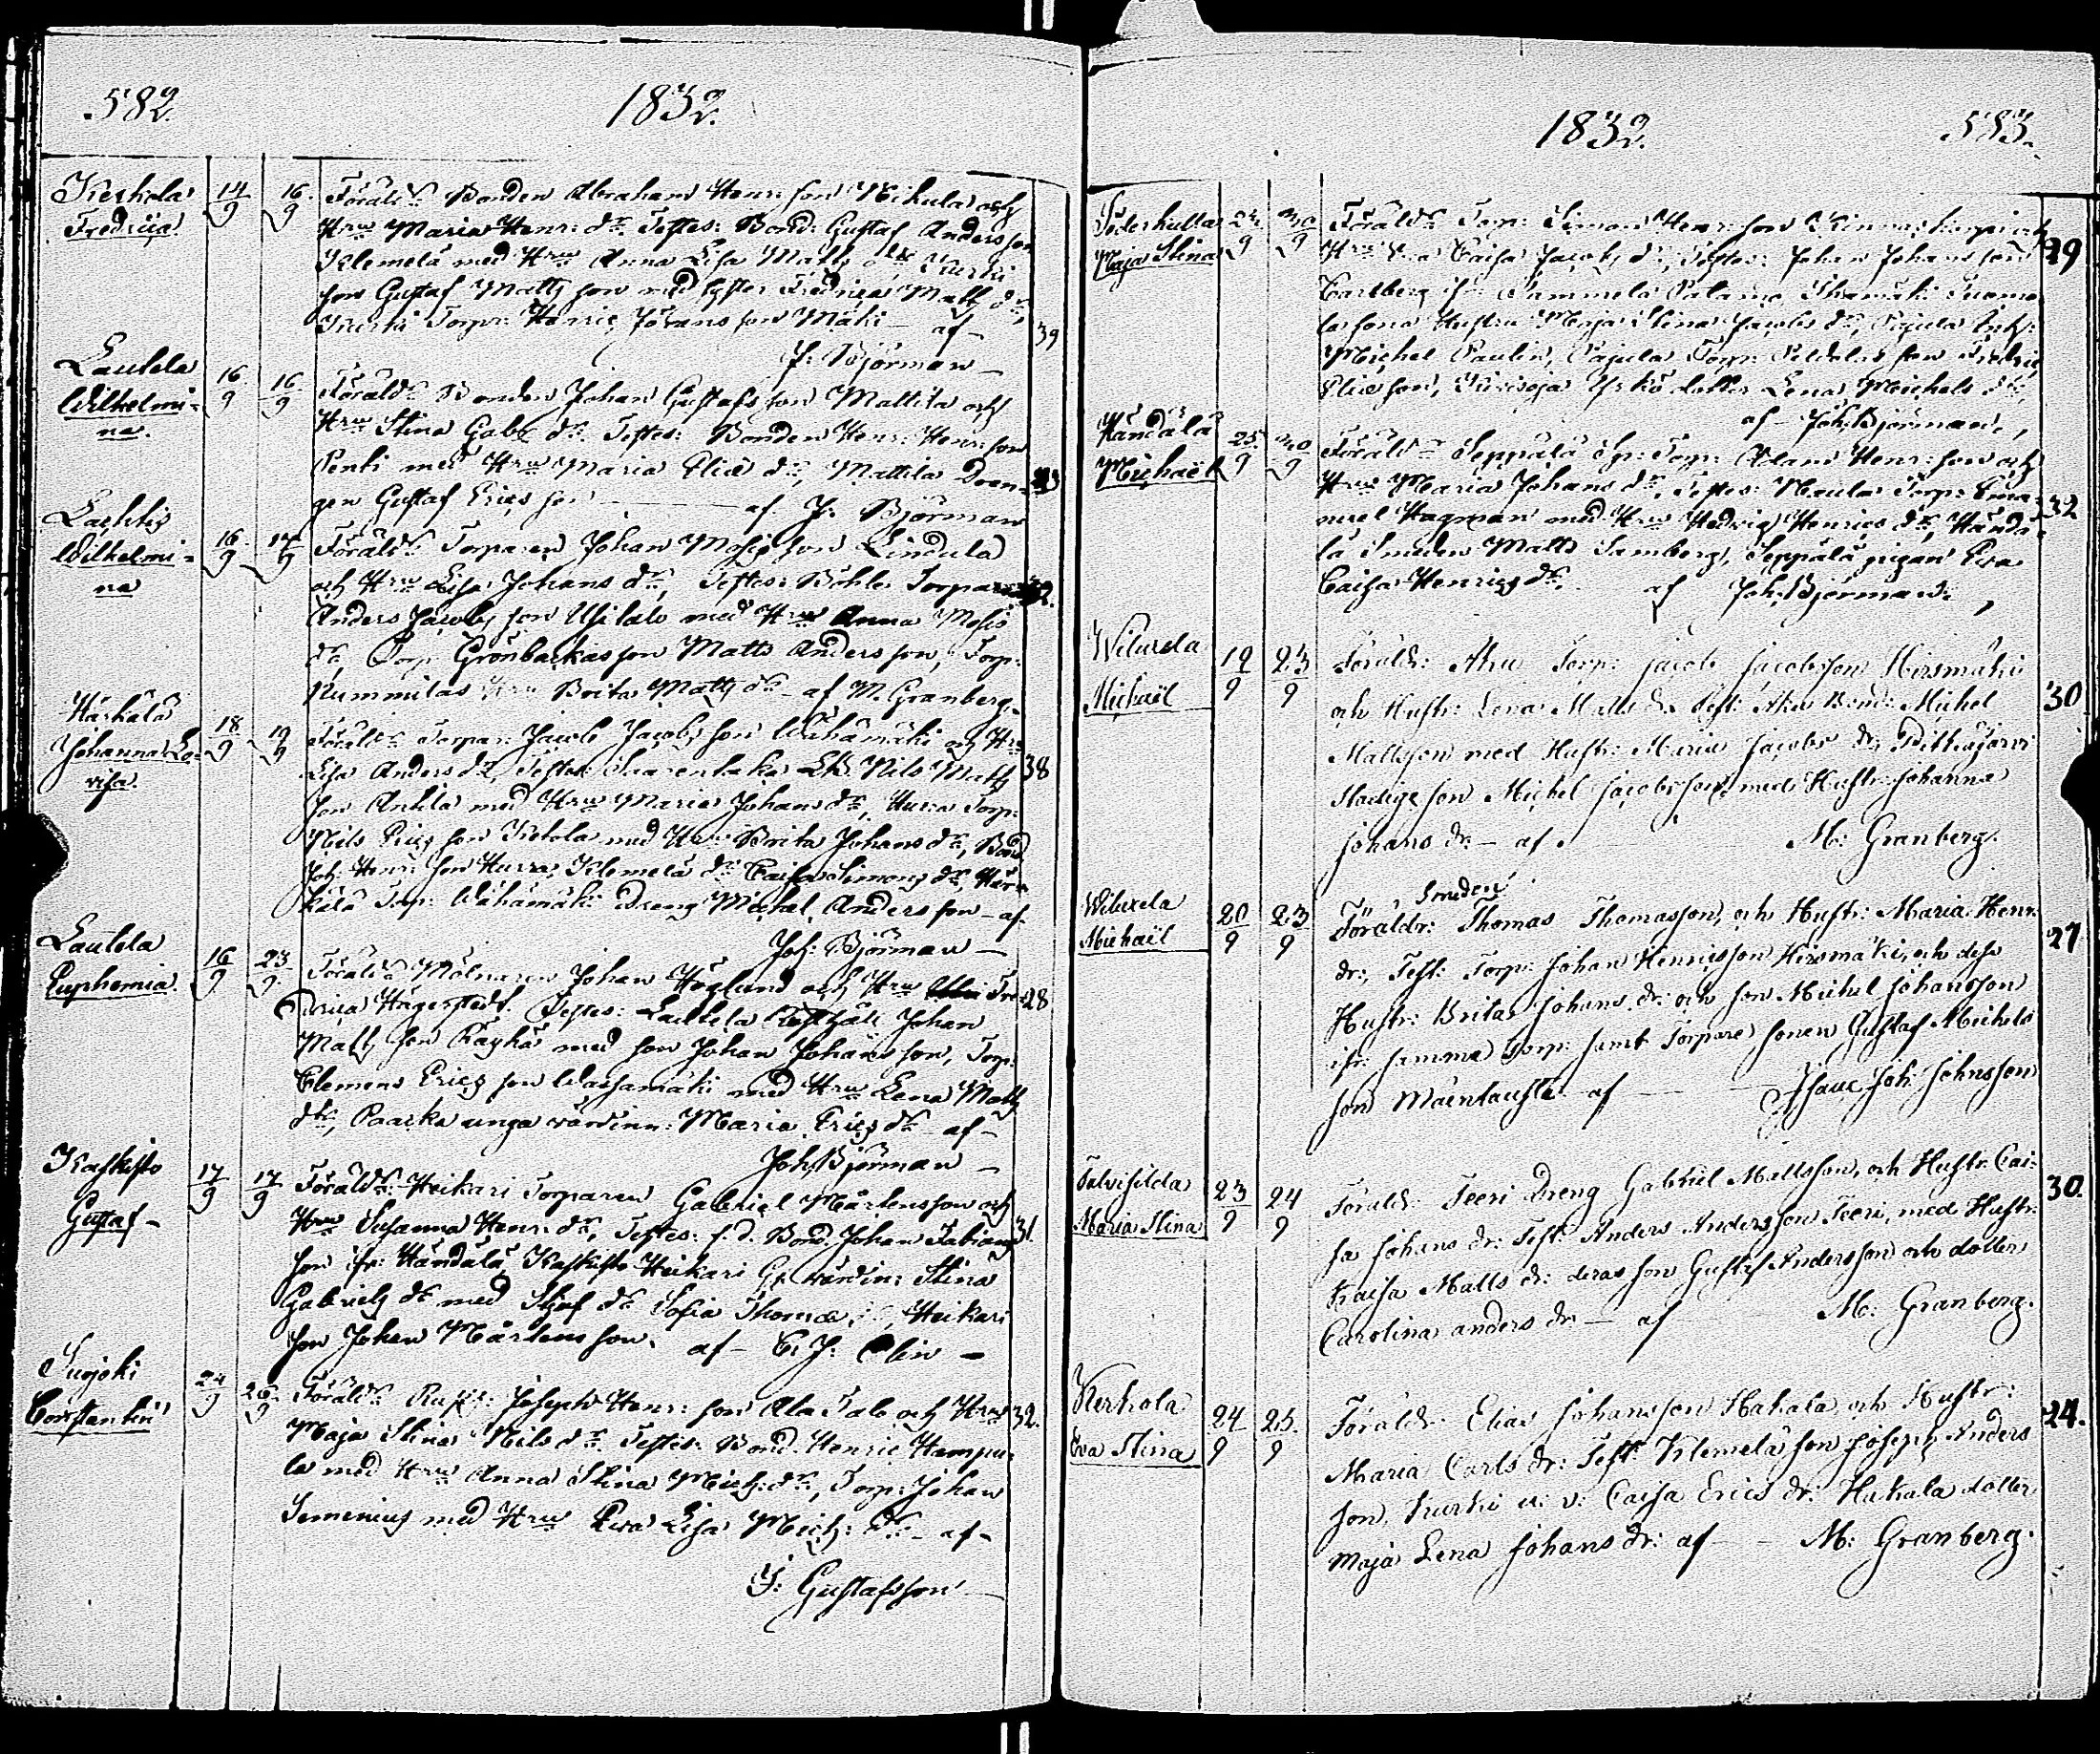 582.
1832.
Kerkola
Fredrica
14/9
16/9
Föräld: Bonden Abraham Henr: son Mikula och
Hru Maria Henr: dr Testes: Bond: Gustaf Andersson
Klemelä med Hru Anna Lisa Matts dr Kurki
son Gustaf Matts son med syster Fredrica Matts dr,
Kurki Torpr: Henric Johans son Mäki — af —
J: Björman —
39
Lautela
Wilhelmi-
na.
16/9
16/9
Föräld: Bonden Johan Gustafs son Mattila och
Hru Stina Gabr dr Testes: Bonden Henr: Henr: son
Penti med Hru Maria Eliæ dr, Mattila Dren-
gen Gustaf Erics son — af J: Björman
Lachtis
Wilhelmi-
na
16/9
17/9
Föräld: Torparen Johan Mosis son Lindula
och Hru Lisa Johans dr, Testes: Böhle Torparen
Anders Jacobs son Usitalo med Hru Anna Mosis
dr, Torp: Grönbackas son Matts Anders son, Torp:
Nummilas Hru Brita Matts dr — af M. Granberg.
Härkälä
Johanna Lo-
visa.
18/9
19/9
Föräld: Torpar: Jacob Jacobs son Wähämäki och Hru
Lisa Anders dr, Testes: Saarenkaka Ldb: Nils Matts
son Anttila med Hru Maria Johans dr, Hurra Torp:
Nils Erics son Ketola med Hru: Brita Johans dr, Bond
Joh: Henr: son Hurra, Klemelä dr Caisa Simons dr, Här-
kälä Torp: Wähämäki Dreng Michel Anders son — af
Joh: Björman —
38
Lautela
Euphemia
16/9
23/9
Föräld: Mölnaren Johan Höglund och Hru Fre-
drica Hagerstedt. Testes: Lautela Johan
Matts son Räyhä med son Johan Johans son, Torp:
Clemens Erics son Wassamäki med Hru Lena Matts
dr, Paarka unga värdinn: Maria Erics dr — af —
Joh: Björman —
28
Kaskisto
Gustaf —
17/9
17/9
Föräld: Heikari Torparen Gabriel Mårtensson och
Hru Susanna Henr: dr, Testes: f. d. Bond. Johan Fabians
son ifr: Händälä, Kaskisto Heikari G. värdin: Stina
Gabriels dr med Stjuf dr Sofia Thomæ dr, Heikari
son Johan Mårtens son. af — C. J. Olin —
31.
Suojoki
Constantin
24/9
26/9
Föräld: Rusth: Joseph Henr: son Ala Talo och Hru
Maja Stina Nils dr. Testes: Bond. Henric Hampu-
la med Hru Anna Stina Mich: dr, Torp: Johan
Semenius med Hru Eva Lisa Mich: dr — af —
J: Gustafsson —
32.
1832.
583.
Maja Stina
24/9
30/9
Föräld: Torp: Simon Henr: son och
Hru Eva Caisa Jacobs dr, Testes: Johan Johans son
Carlberg ifr: Sammela Thomäki Tuomo-
la sons Hustru Maja Stina Jacobs dr, Pajula Inh:
Michel Paulin, Pajula Torp: son Fredric
Eliæ son, dotter Lena Michels dr,
af — Joh: Björman,
29
Händälä
Michaël
25/9
30/9
Föräld: Seppälä Sp: Torp: Adam Henr: son och
Hru Maria Johans dr, Testes: Maula Torp: Ema-
nuel Hagman med Hru Hedvig Henrics dr, Händä-
lä Smeden Matts Lamberg, Seppälä pigan Eva
Caisa Henrics dr, af Joh: Björman.,
32
Wiluxela
Michaël
19/9
23/9
Föräldr: Ahu Torp: Jacob Jacobsson Hirsmäki
och Hustr: Lena Matts dr Test: Ahu Bond: Michel
Mattsson med Hustr: Maria Jacobs dr, Pitkäjärvi
Stadige son Michel Jacobsson, med Hustr: Johanna
Johans dr — af M: Granberg.
30
Wiluxela
Michaël
20/9
23/9
Smeden
Föräldr: Thomas Thomasson, och Hustr: Maria Henr:
dr:, Test: Torp: Johan Henricsson Hirsmäki, och dess
Hustr: Brita Johans dr: och son Michel Johansson
ifr: samma Torp: samt Torpare sonen Gustaf Michels
son Mäentausta. af — Isaac Joh: Johnsson
27
Talvisilda
Maria Stina
23/9
24/9
Föräldr: Teeri Dreng Gabriel Mattsson, och Hustr: Cai-
sa Johans dr: Test: Anders Andersson Teeri, med Hustr:
Kaisa Matts dr: deras son Gustaf Andersson och dotter
Carolina anders dr: — af M: Granberg.
30.
Kerkola
Eva Stina
24/9
25/9
Föräldr: Elias Johansson Hakala, och Hustr:
Maria Carls dr: Test: Klemelä son Joseph Anders
son, Kurki u: v: Caisa Erics dr: Hakala dotter
Maja Lena Johans dr: af — M: Granberg.
24.